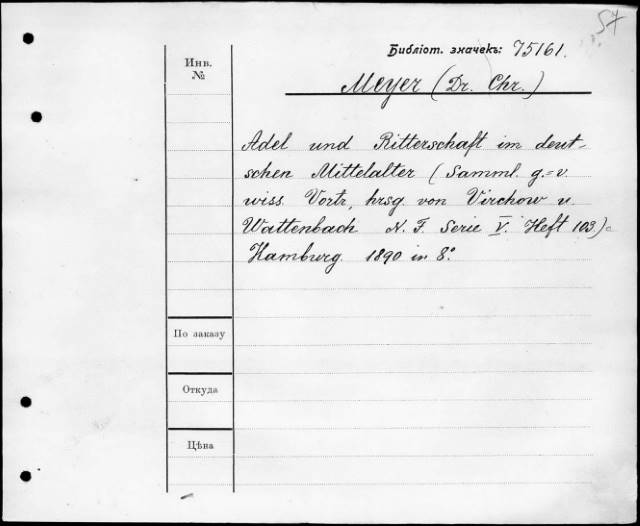 57
Библіот. значекъ: 75161.
Инв.
№
Meyer (Dr. Chr.)
Adel und Ritterschaft im deut-
schen Mittelalter (Samml. g.=v.
wiss. Vortr., hrsg von Virchow u.
Wattenbach N. F. Serie V. Heft 103)
Hamburg. 1890 in 8°.
По заказу
Откуда
Цѣна